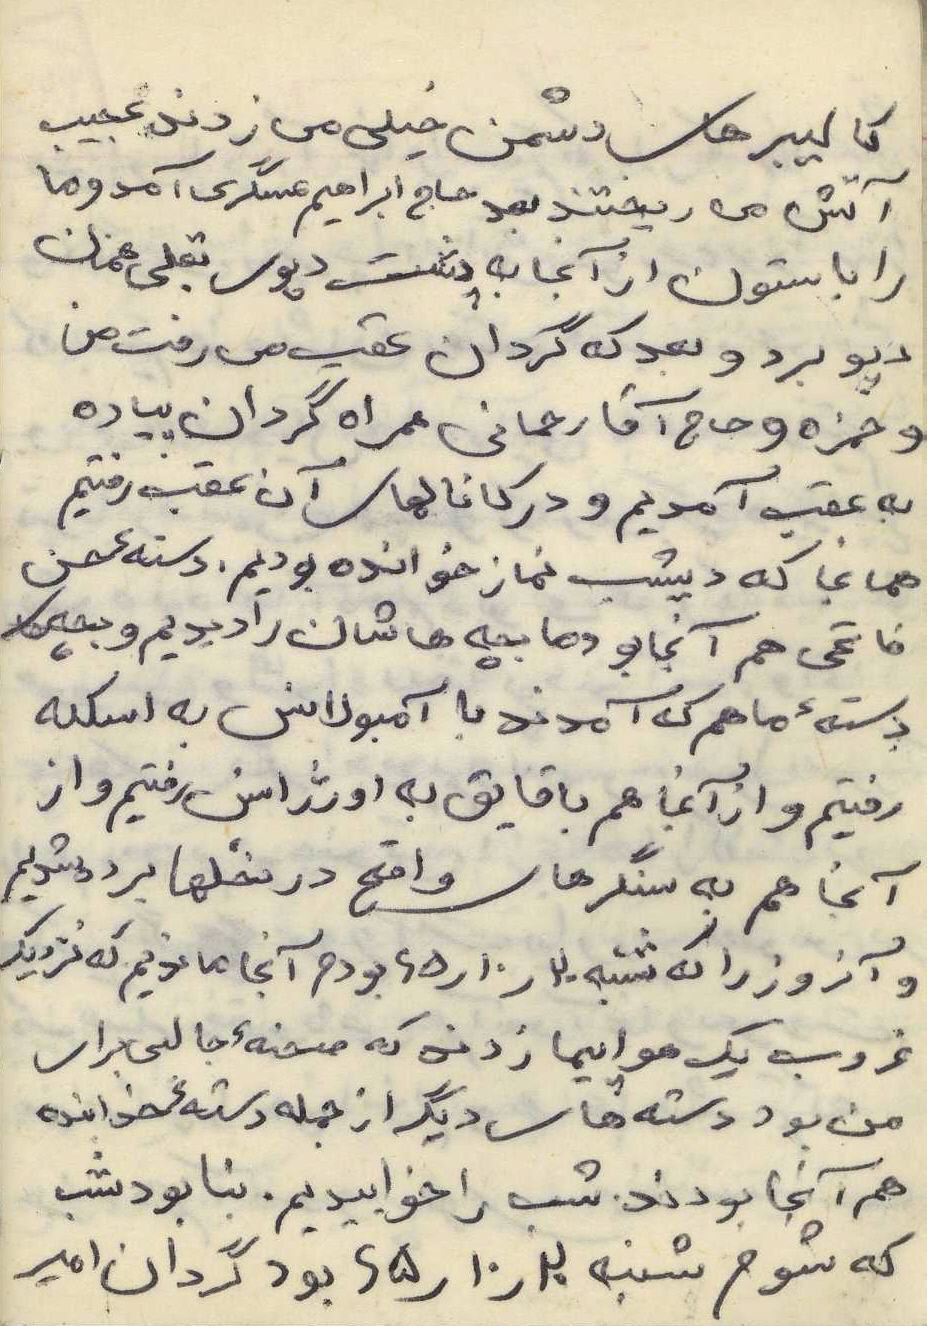 کالیبرهای دشمن خیلی می زدند عجیب
آتش می ریختند بعد حاج ابراهیم عسگری آمد و ما
را با ستون از آنجا به پشت دپوی بغلی همان
دپو برد و بعد که گردان عقب می رفت من
و حمزه و حاج آقا رحمانی همراه گردان پیاده
به عقب آمدیم و در کانالهای آن عقب رفتیم
همانجا که دیشب نماز خوانده بودیم. دسته
فاتحی هم آنجا بود و ما بچه هاشان را دیدیم و بچه های
دسته ما هم که آمدند با آمبولانس به اسکله
رفتیم و از آنجا هم با قایق به اورژانس رفتیم و از
آنجا هم به سنگرهای واقع در نخلها برده شدیم
و آنروز را که شنبه ۲۰ر۱۰ر۶۵ بود در آنجا ماندیم که نزدیک
غروب یک هواپیما زدند که صحنه جالبی برای
من بود دسته های دیگر از جمله دسته
هم آنجا بودند. شب را خوابیدیم. بنا بود شب
که شود شنبه ۲۰ر۱۰ر۶۵ بود گردان امیر